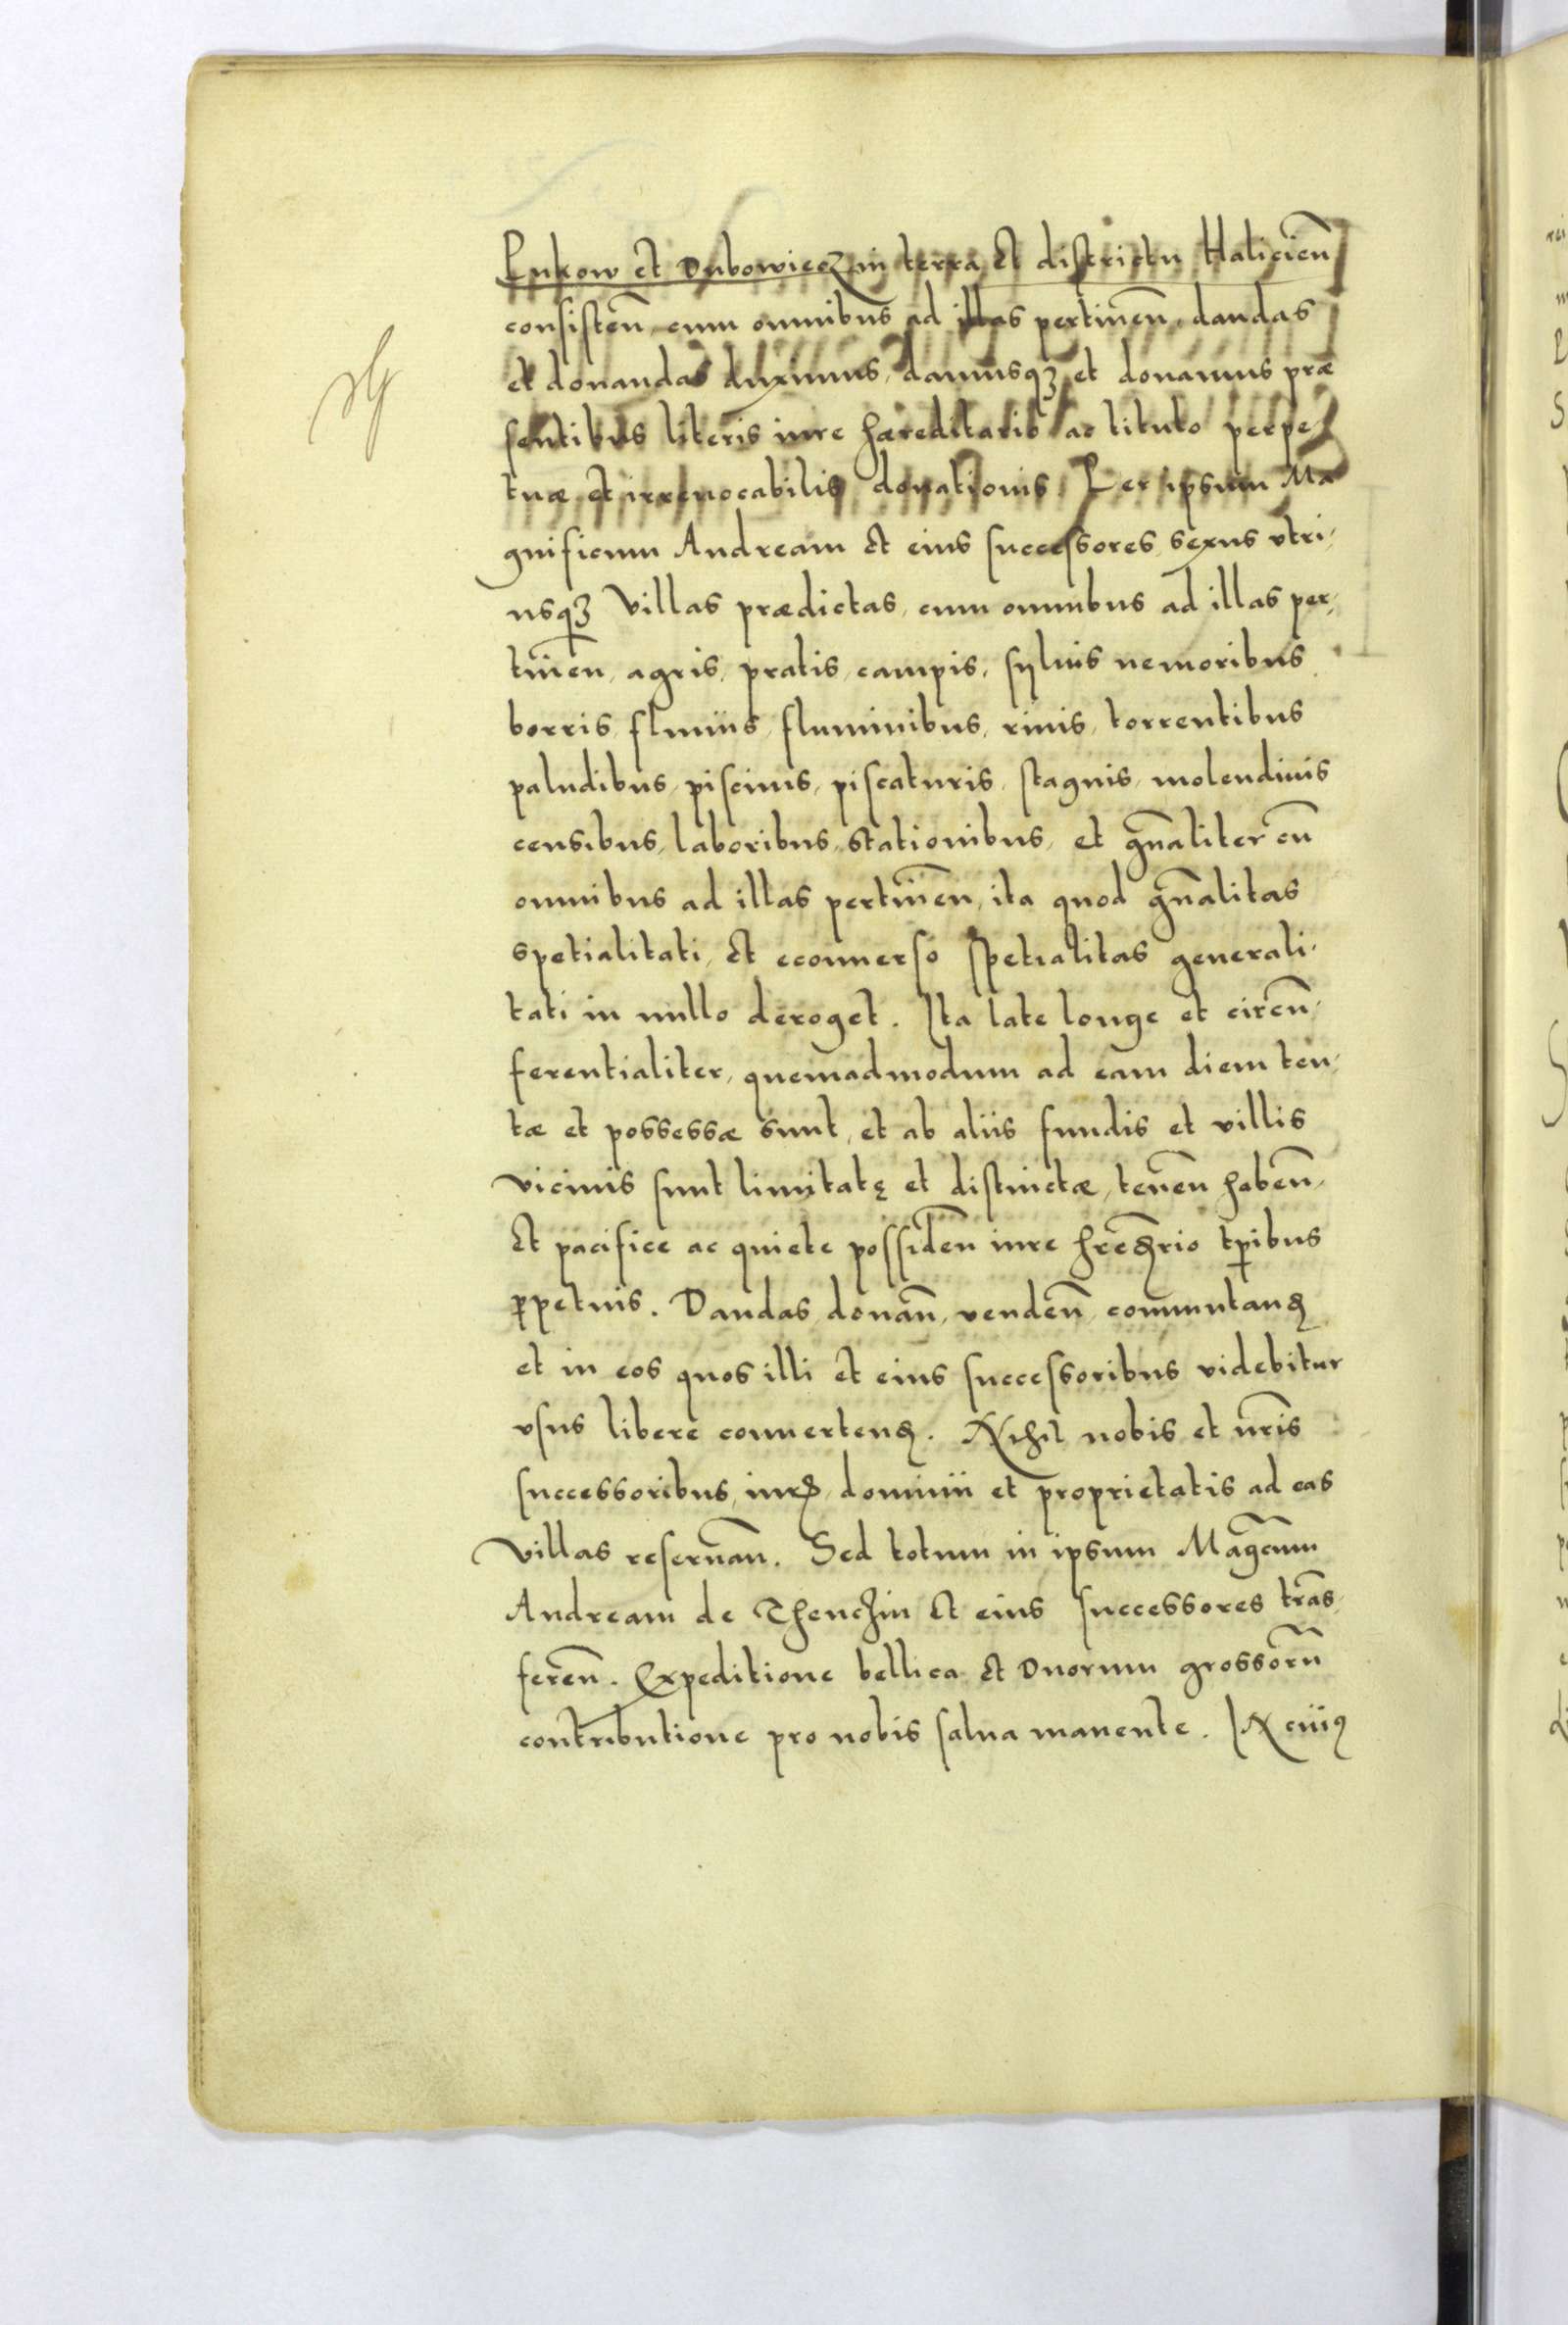 Lukow et Dubowiecz in terra et districtu Haliciēn
consistēn cum omnibus ad illas pertinēn, dandas
et donandas duximus, damusqꝫ et donamus præ
sentibus literis iure hæreditario ac titulo perpe
tuæ et irreuocabilis donationis Per ipsum Ma
gnificum Andream et eius successores sexus vtri,
usqꝫ Villas prædictas, cum omnibus ad illas per,
tinēn, agris, pratis, campis, syluis nemoribus
borris, fluuiis, fluminibus, riuis, torrentibus
paludibus, piscinis, piscaturis, stagnis, molendinis
censibus, laboribus, stationibus, et gn̄aliter cū
omnibus ad illas pertinēn, ita quod gn̄alitas
spetialitati, et econuerso spetialitas generali,
tati in nullo deroget. Ita late longe et circū,
ferentialiter, quemadmodum ad eam diem ten,
tæ et possessæ sunt, et ab aliis fundis et villis
vicinis sunt limitatę et distinctæ, tenēn habēn,
Et pacifice ac quiete possidēn iure hr̄eđrio tꝑibus
ꝑpetuis. Dandas, donān, vendēn, commutanđ
et in eos quos illi et eius successoribus videbitur
vsus libere conuertenđ. Nihil nobis et nr̄is
successoribus, iuris, dominii et proprietatis ad eas
Villas reseruān. Sed totum in ipsum Maḡcum
Andream de Thenczin et eius successores trās,
ferēn. Expeditione bellica et Duorum grossorū
contributione pro nobis salua manente. IN cuiꝰ